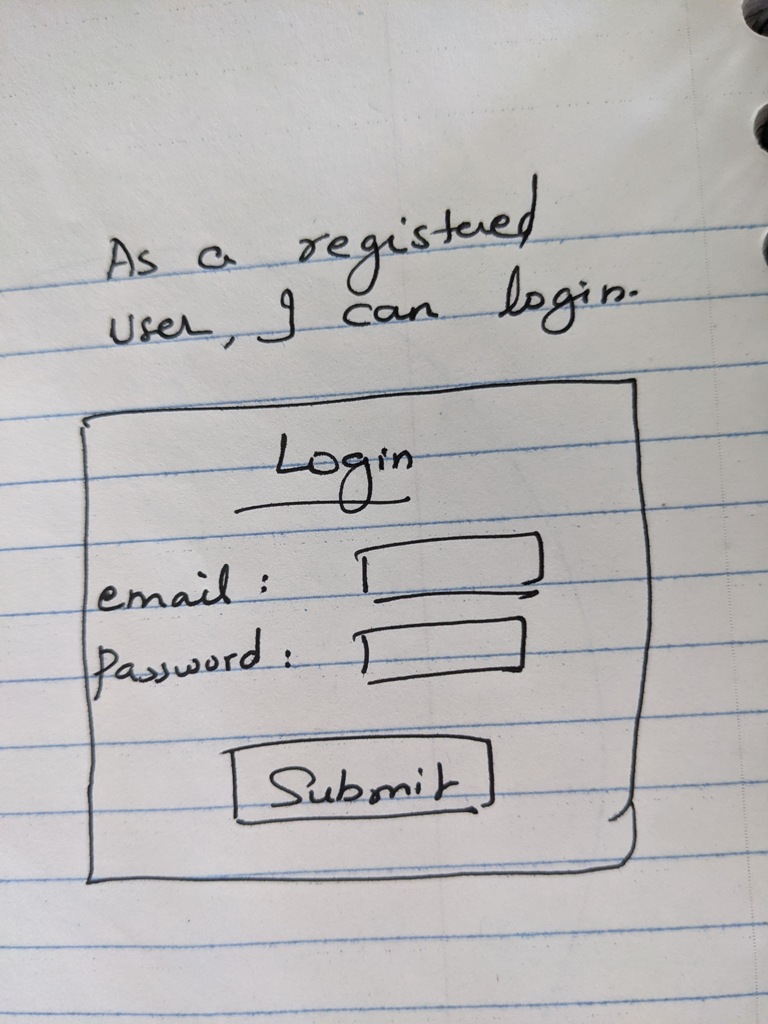 As a registered
user, I can login.
Login
email :
Password :
Submit